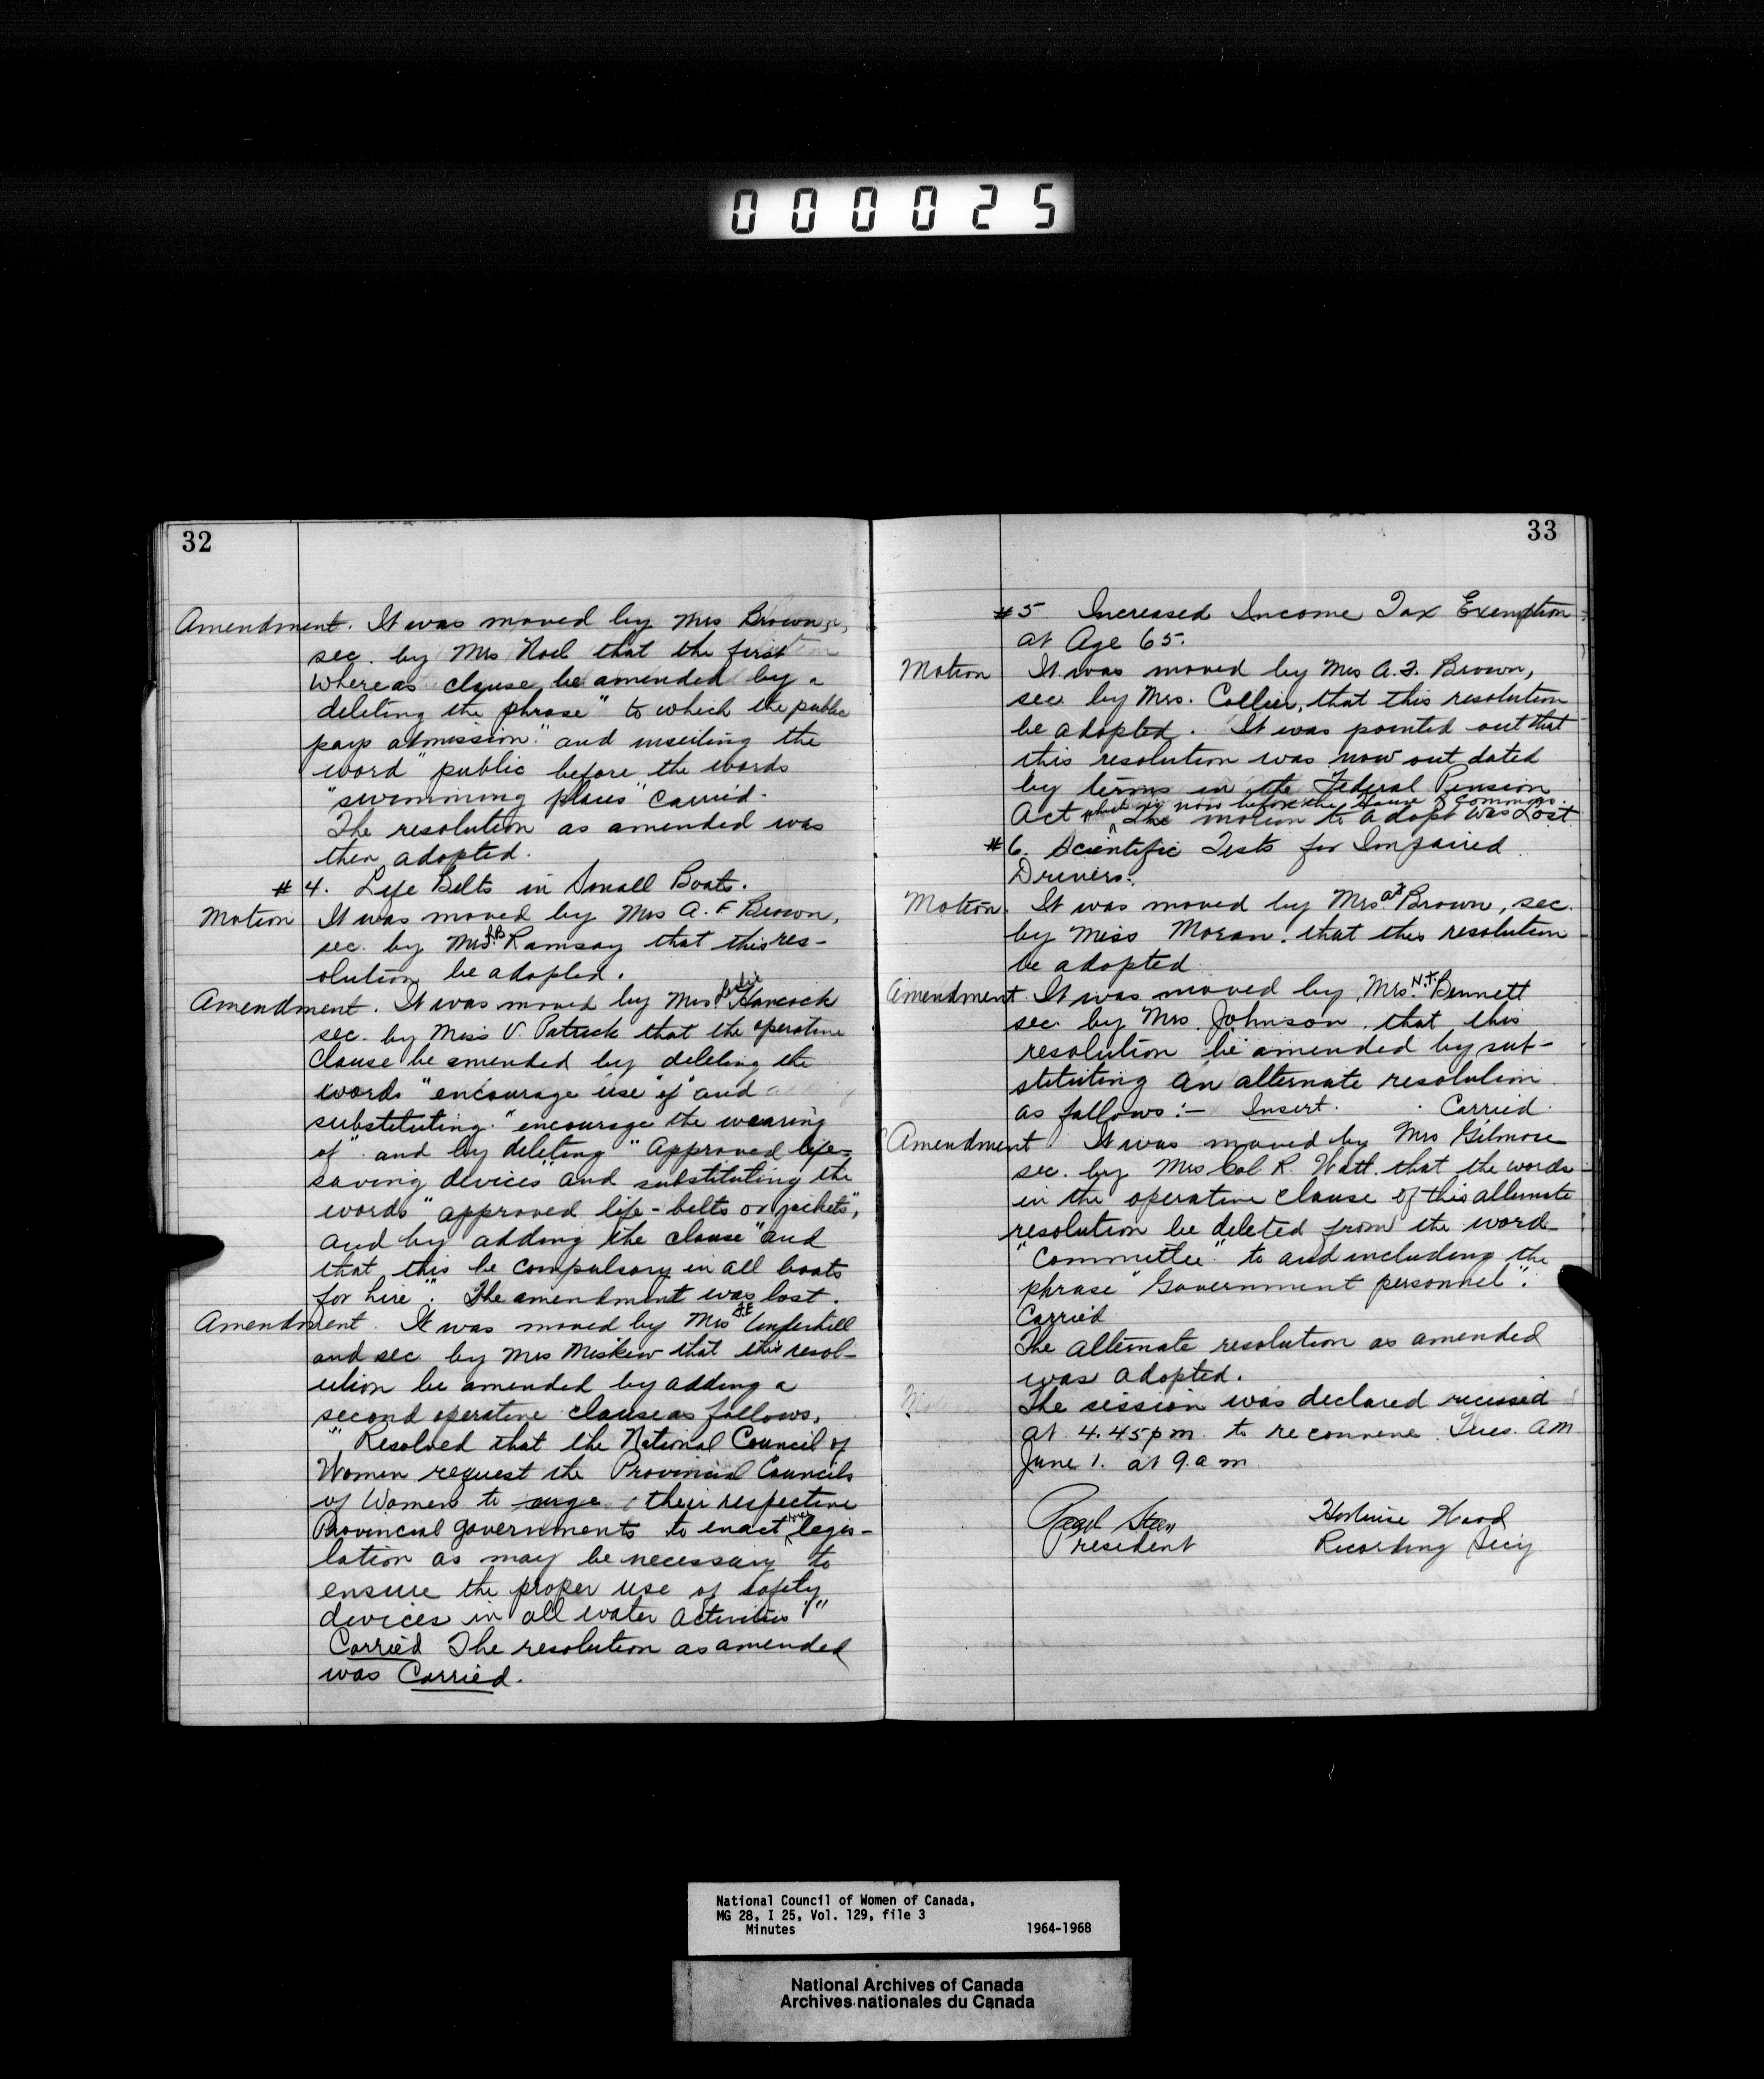 000025
32
Amendment. It was moved by Mrs Brown,
sec. by Mrs Noel that the first
whereas clause be amended by
deleting the phrase "to which the public
pays admission." and inserting the
word "public before the words
"swimming places" carried.
The resolution as amended was
then adopted.
# 4. Life Belts in Small Boats.
Motion It was moved by Mrs A. F Brown,
sec. by Mrs. Ramsay that this res-
olution be adopted.
Amendment. It was moved by Mrs Hancock
sec. by Miss V. Patrick that the operative
clause be amended by deleting the
words "encourage use of" and
substituting "encourage the wearing
of" and by deleting "approved life-
saving devices" and substituting the
words "approved life-belts or jackets",
and by adding the clause "and
that this be compulsory in all boats
for hire". The amendment was lost.
Amendment. It was moved by Mrs J.E Underhill
and sec. by Mrs Miskew that this resol-
ution be amended by adding a
second operative clause as follows,
"Resolved that the National Council of
Women request the Provincial Councils
of Women to urge their respective
Provincial governments to enact such legis-
lation as may be necessary to
ensure the proper use of safety
devices in all water activities"
Carried The resolution as amended
was Carried.
33
#5 Increased Income Tax Exemption
at Age 65.
Motion It was moved by Mrs A.F. Brown,
sec. by Mrs. Collier, that this resolution
be adopted. It was pointed out that
this resolution was now out dated
by terms in the Federal Pension
Act which is now before the House of Commons. The motion to adopt was Lost
#6. Scientific Tests for Impaired
Drivers.
Motion. It was moved by Mrs. A F Brown, sec.
by Miss Moran. that this resolution
be adopted
Amendment It was moved by Mrs. N.F. Bennett
sec. by Mrs. Johnson, that this
resolution be amended by sub-
stituting an alternate resolution
as follows:- Insert. Carried.
Amendment It was moved by Mrs Gilmore
sec. by Mrs Col. R. Watt. that the words
in the operative clause of this alternate
resolution be deleted from the word
"Committee" to and including the
phrase "Government personnel".
Carried
The alternate resolution as amended
was adopted.
The session was declared recessed
at 4.45 pm. to reconvene Tues. AM
June 1. at 9. a m
Hortense Wood
President Recording Sec'y
National Council of Women of Canada,
MG 28, I 25, Vol. 129, file 3
Minutes 1964-1968
National Archives of Canada
Archives nationales du Canada